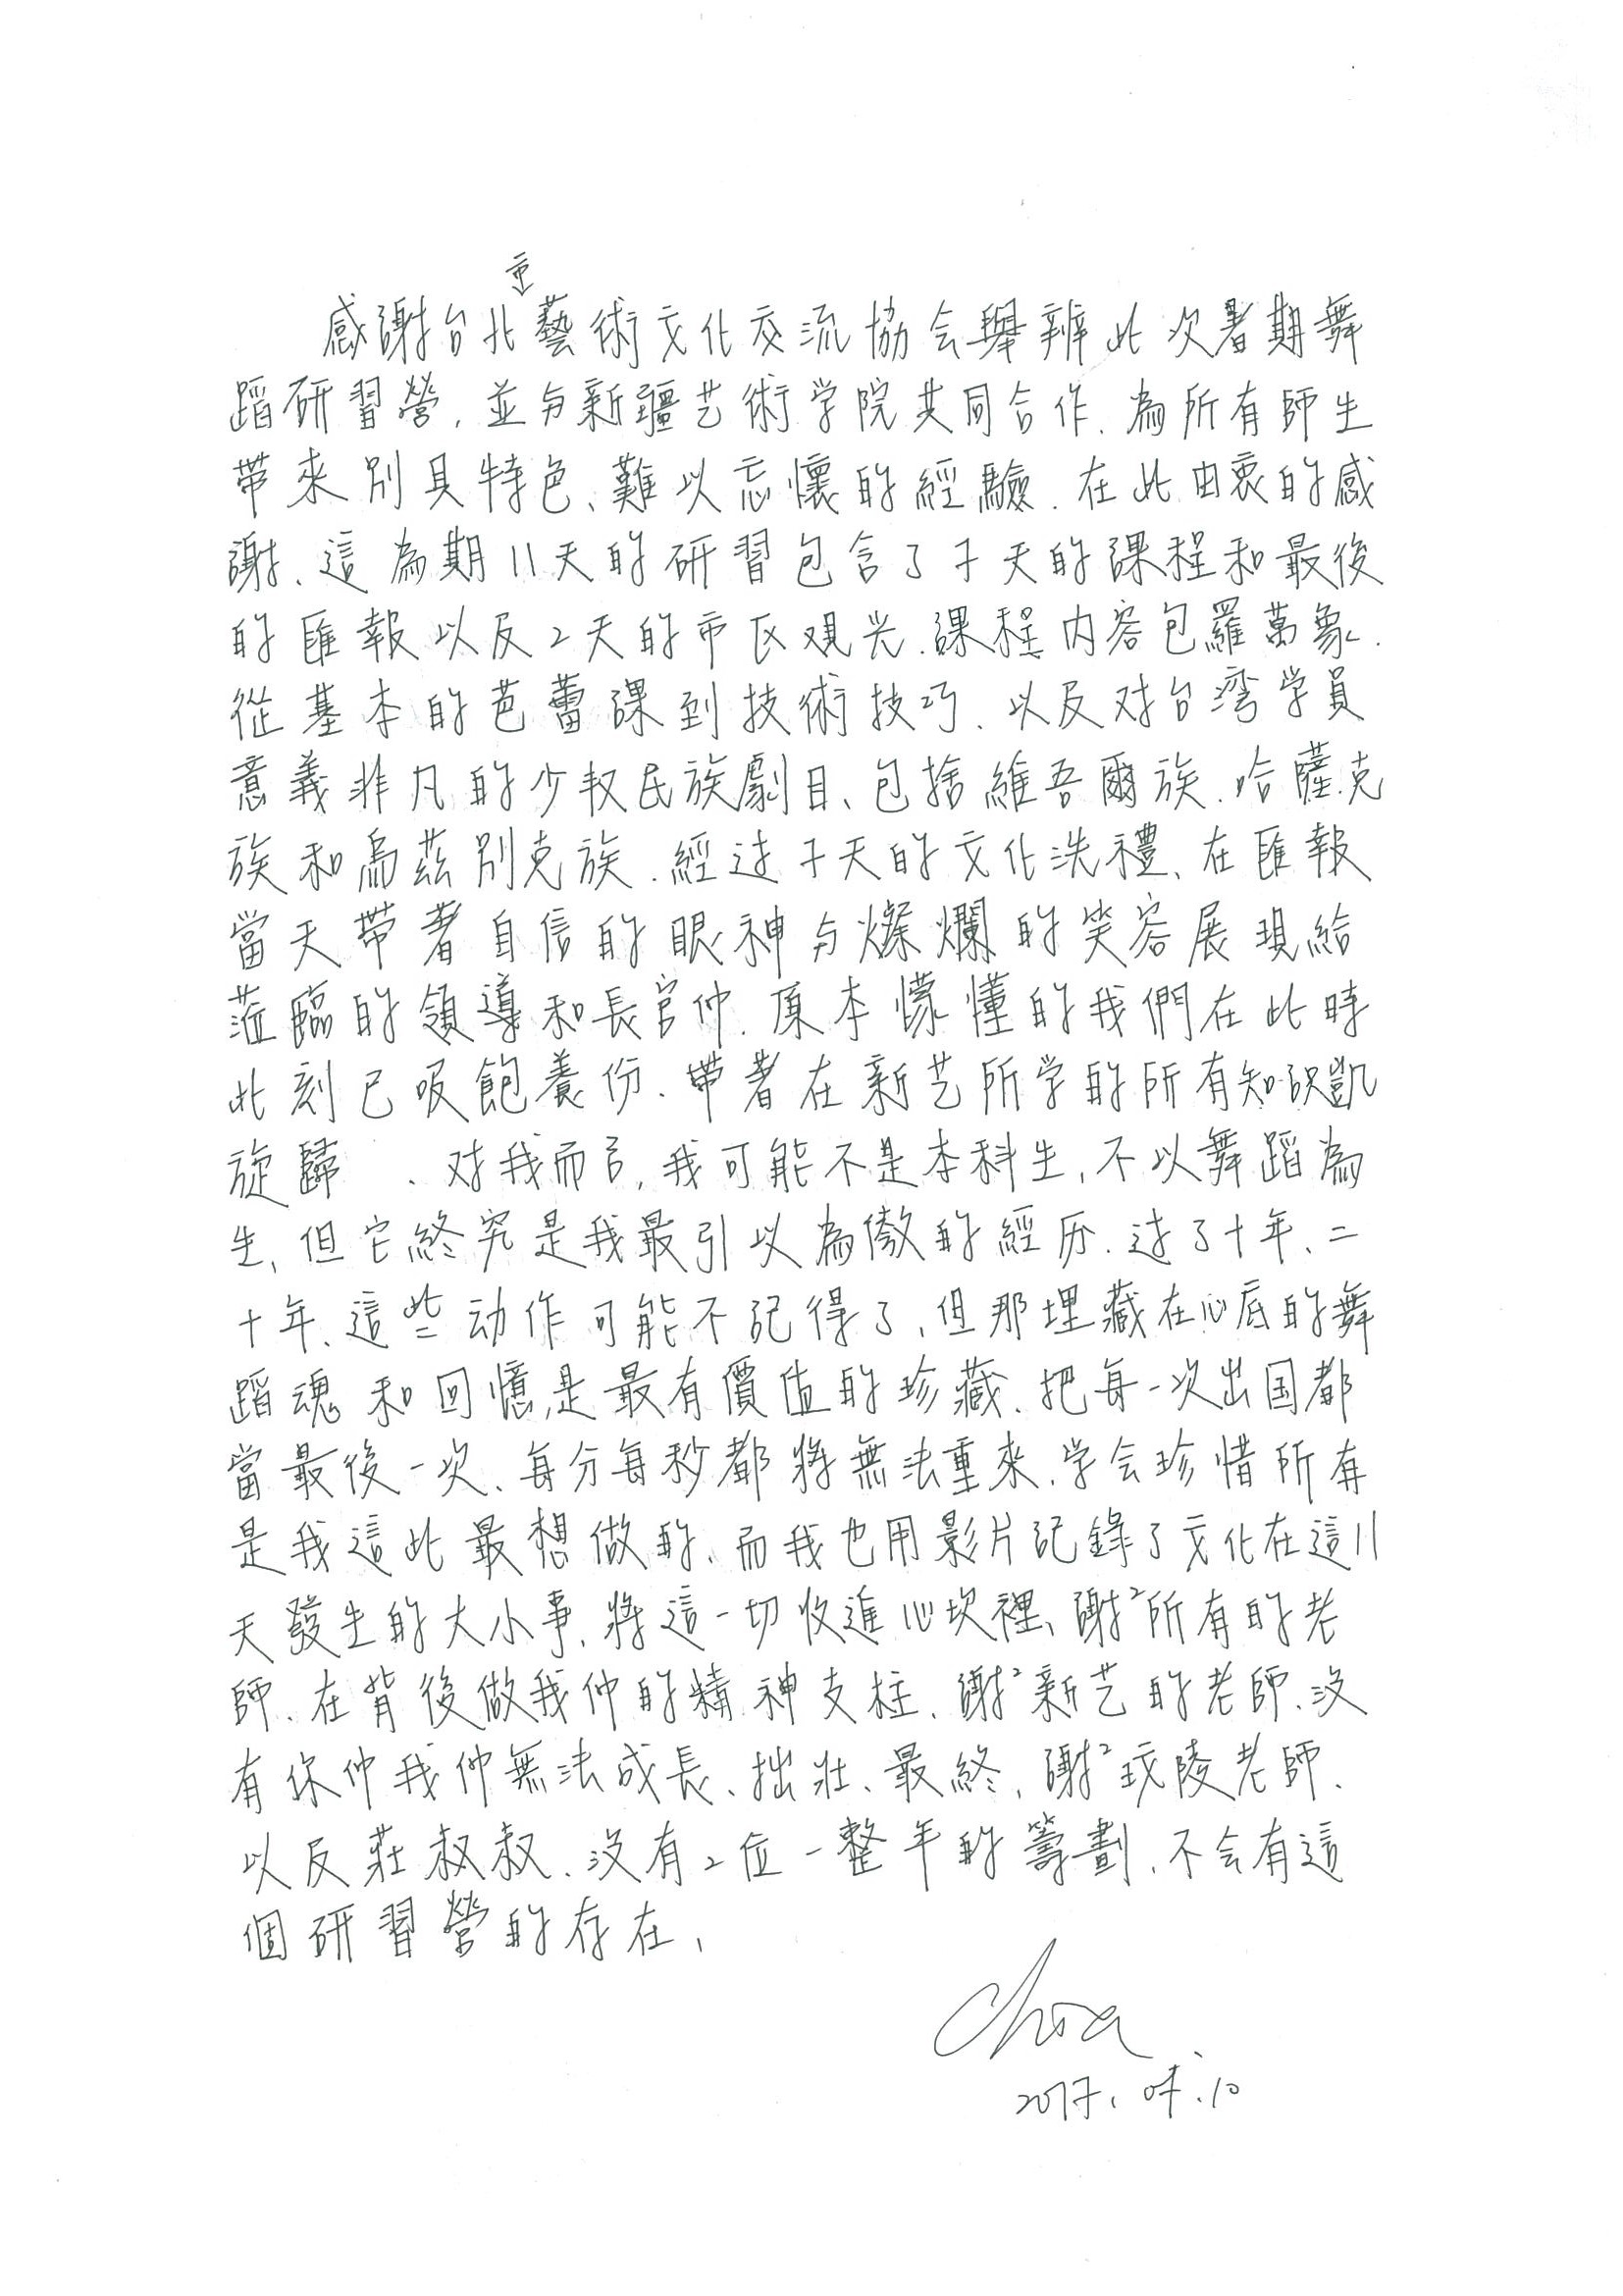 市
感謝台北藝術文化交流協会舉辦此次暑期舞
蹈研習營,並与新疆艺術学院共同合作、為所有師生
帶來別具特色、難以忘懷的經驗.在此由衷的感
謝、這為期11天的研習包含了7天的課程和最後
的匯報以及2天的市区观光.課程内容包羅萬象.
從基本的芭蕾課到技術技巧、以及对台湾学員
意義非凡的少数民族劇目、包括維吾爾族.哈薩克
族和烏茲別克族.經过7天的文化洗禮、在匯報
當天帶著自信的眼神与燦爛的笑容展現給
蒞臨的領導和長官们.原本懞懂的我們在此時
此刻已吸飽養份.帶著在新艺所学的所有知识凱
旋歸 、对我而言,我可能不是本科生,不以舞蹈為
生,但它終究是我最引以為傲的經历.过了十年、二
十年、這些动作可能不記得了,但那埋藏在心底的舞
蹈魂和回憶,是最有價值的珍藏、把每一次出国都
當最後一次、每分每秒都將無法重來.学会珍惜所有
是我這此最想做的、而我也用影片記錄了文化在這11
天發生的大小事,將這一切收進心坎裡、謝²所有的老
師、在背後做我们的精神支柱、謝²新艺的老師、沒
有你们我们無法成長、拙壯、最終,謝²玫陵老師、
以及莊叔叔、沒有2位一整年的籌劃,不会有這
個研習營的存在,
2017.07.10